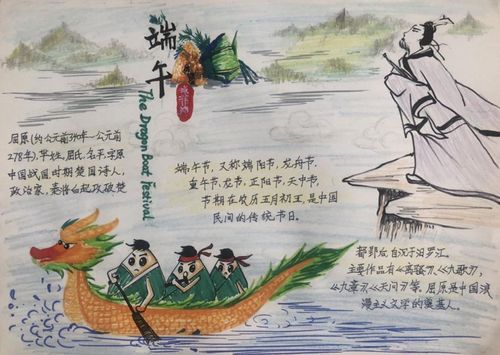 端午
The Dragon Boat Festival
屈原(约公元前340年—公元前
278年),芈姓,屈氏,名平,字原
中国战国时期楚国诗人,
政治家,秦将白起攻破楚
端午节,又称端阳节,龙舟节,
重午节,龙节,正阳节,天中节,
节期在农历五月初五,是中国
民间的传统节日。
都郢后,自沉于汨罗江。
主要作品有《离骚》《九歌》,
《九章》《天问》等,屈原是中国浪
漫主义文学的奠基人。